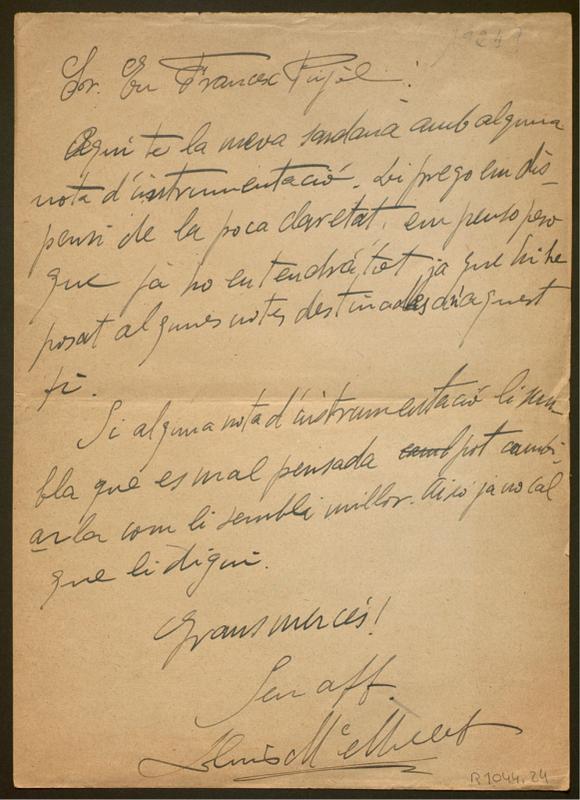 1924?
Sor. En Francesc Pujòl:
Aquí te la meva sardana amb alguna
nota d'instrumentació. Li prego em dis-
pensi de la poca claretat, em penso pero
que ja ho entendrá tot, ja que hi he
posat algunes notes destinades a n'aquest
fi.
Si alguna nota d'instrumentació li sem-
bla que es mal pensada pot cambi-
arla com li sembli millor. Aixo ja no cal
que li digui.
Grans mercés!
Seu aff.
Lluís Mª Millet
R1044.24